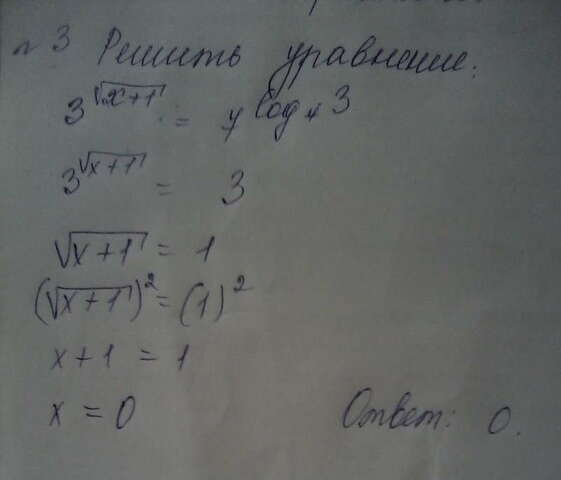 № 3 Решить уравнение:
3^√(x+1) = 4^log₄3
3^√(x+1) = 3
√(x+1) = 1
(√(x+1))² = (1)²
x+1 = 1
x = 0 Ответ: 0.